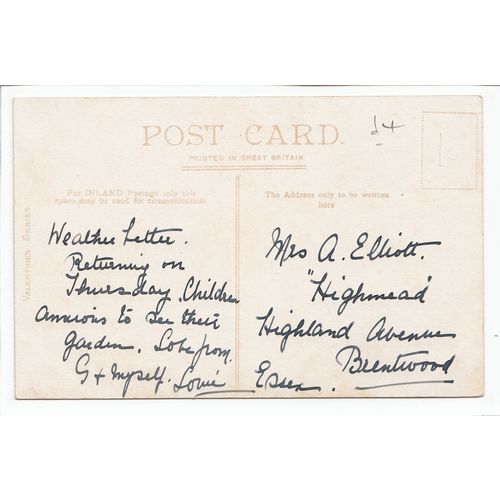 POST CARD.
PRINTED IN GREAT BRITAIN
For INLAND Postage only this
space may be used for communication.
The Address only to be written
here
VALENTINES SERIES.
Weather better.
Returning on
Thursday. Children
anxious to see their
garden. Love from
G + myself. Louie
Mrs A. Elliott.
"Highmead"
Highland Avenue
Brentwood
Essex.